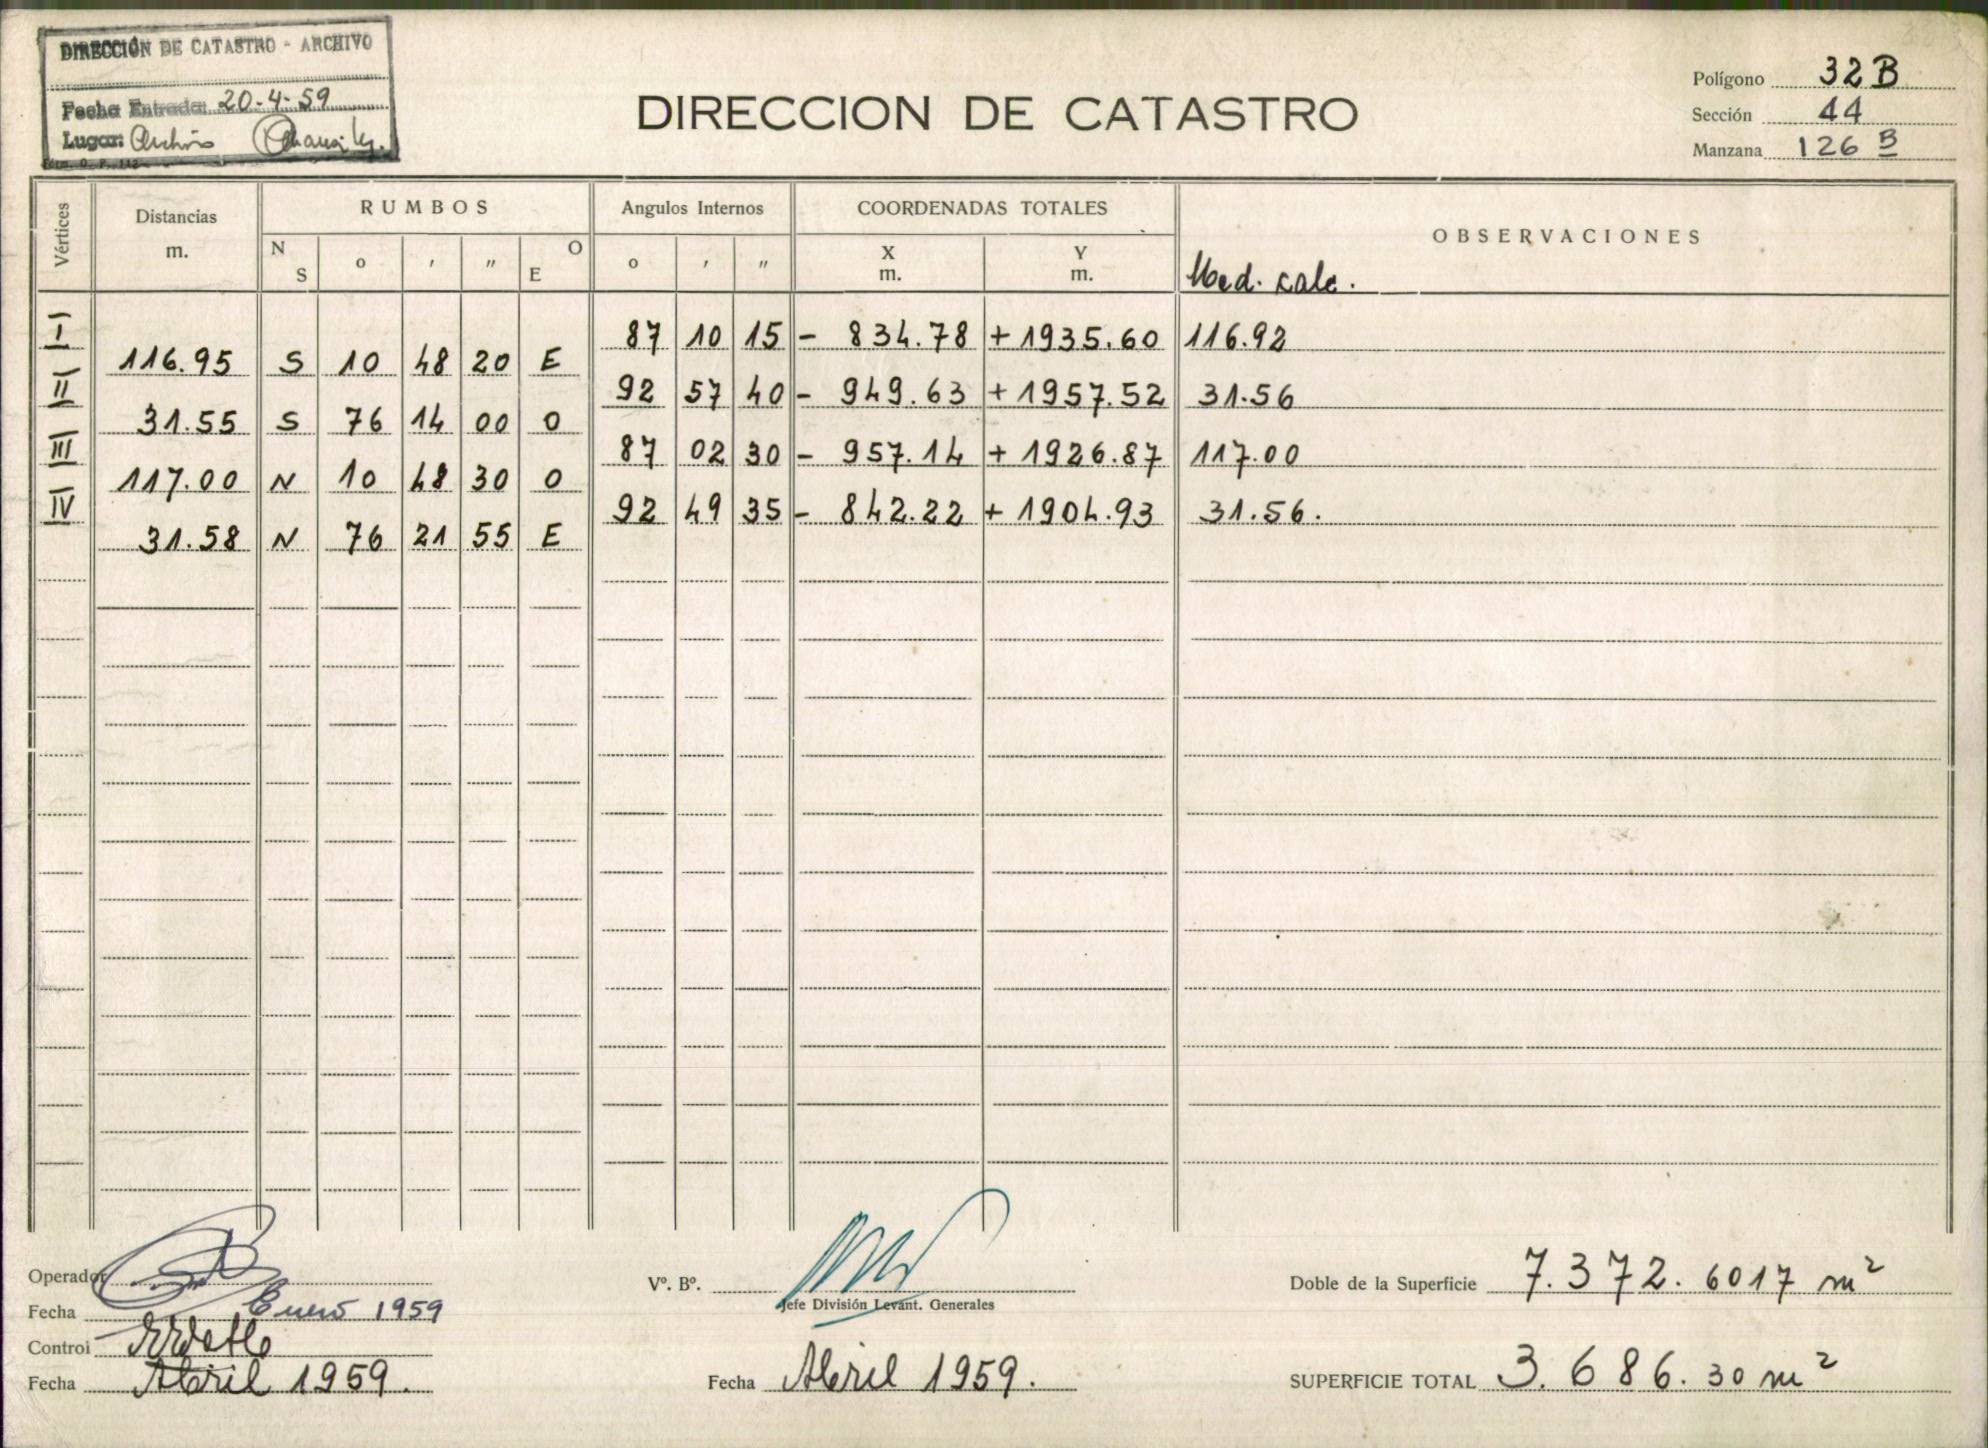 DIRECCIÓN DE CATASTRO - ARCHIVO
Fecha Entrada: 20-4-59
Lugar: Archivo
DIRECCION DE CATASTRO
Polígono 32B
Sección 44
Manzana 126 B
Vértices Distancias m. RUMBOS Angulos Internos COORDENADAS TOTALES OBSERVACIONES
N S o ' " O E o ' " X m. Y m. Med. calc.
I 87 10 15 - 834.78 + 1935.60 116.92
116.95 S 10 48 20 E
II 92 57 40 - 949.63 + 1957.52 31.56
31.55 S 76 14 00 O
III 87 02 30 - 957.14 + 1926.87 117.00
117.00 N 10 48 30 O
IV 92 49 35 - 842.22 + 1904.93 31.56.
31.58 N 76 21 55 E
Operador
Fecha Enero 1959
Control
Fecha Abril 1959.
Vº. Bº.
Jefe División Levant. Generales
Fecha Abril 1959.
Doble de la Superficie 7.372.6017 m²
SUPERFICIE TOTAL 3.686.30 m²